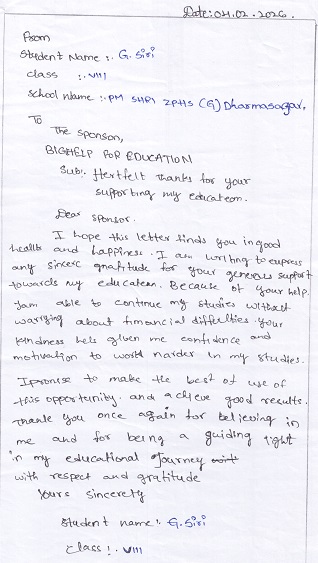 Date: 04.02.2026.
From
Student Name :. G. Siri
class :. VIII
school Name :. PM SHRI ZPHS (G) Dharmasagar.
To
The sponsor,
BIGHELP FOR EDUCATION
Sub:. Hertfelt thanks for your
supporting my educateon.
Dear sponsor.
I hope this letter finds you in good
health and happiness. I am writing to express
any sincere gratitude for your generous support
towards my educateon. Because of your help.
Iam able to continue my studies without
warrying about financial difficulties. your
kindness hels given me confidence and
motivation to world harder in my studies.
I promise to make the best of use of
this opportunity. and achieve good results.
Thank you once again for believing in
me and for being a guiding light
in my educational Journey
with respect and gratitude
yours sincerely
Student name :. G. Siri
class :. VIII